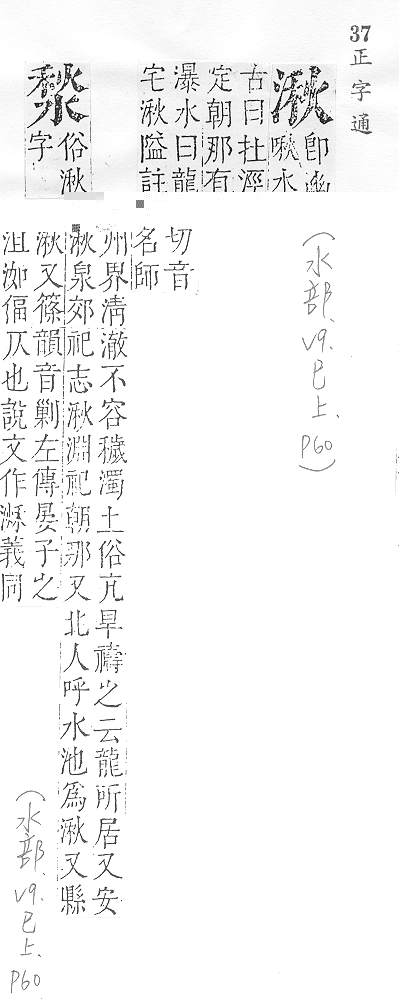 37
正字通
湫
即幽
啾水
古曰扗涇
定朝那有
瀑水曰龍
宅湫隘註
湬
俗湫
字
(水部. V9. 巳上. P60)
切音
名師
州界清澈不容穢濁土俗亢旱禱之云龍所居又安
湫泉郊祀志湫淵祀朝那又北人呼水池爲湫又縣
湫又篠韻音剿左傳晏子之
沮洳偪仄也說文作義同
(水部. V9. 巳上. P60